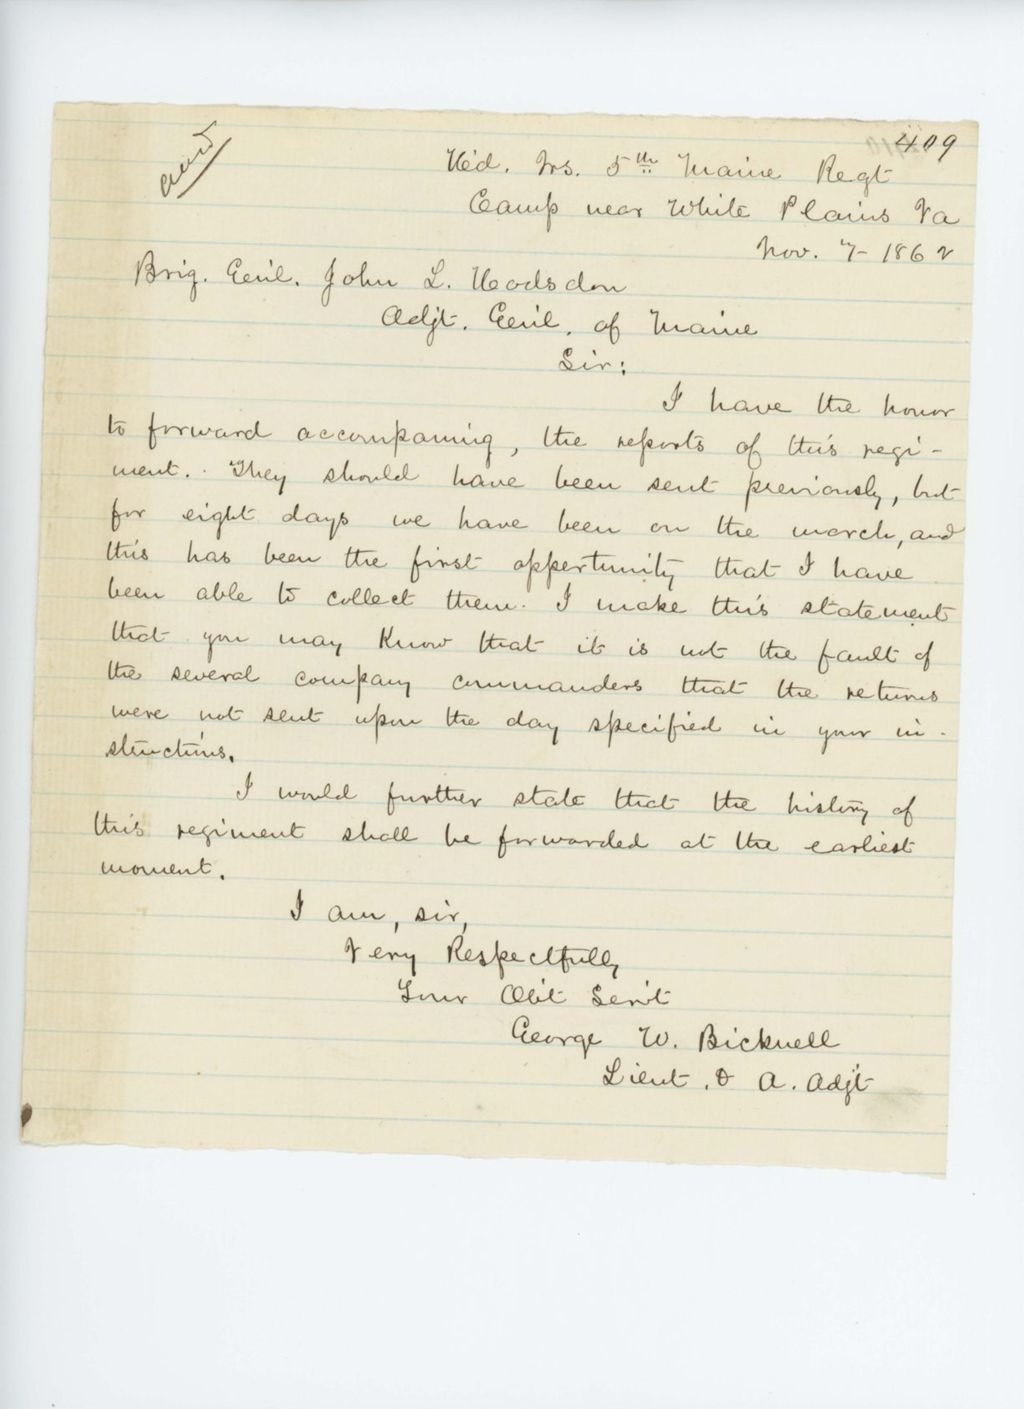 409
Hd. Qrs. 5th Maine Regt
Camp near White Plains Va
Nov. 7- 1862
Brig. Genl. John L. Hodsdon
Adjt. Genl. of Maine
Sir:
I have the honor
to forward accompaning, the reports of this regi-
ment. They should have been sent previously, but
for eight days we have been on the march, and
this has been the first opportunity that I have
been able to collect them. I make this statement
that you may know that it is not the fault of
the several company commanders that the returns
were not sent upon the day specified in your in-
structions.
I would further state that the history of
this regiment shall be forwarded at the earliest
moment.
I am, sir,
Very Respectfully
Your Obt Servt
George W. Bicknell
Lieut. & A. Adjt